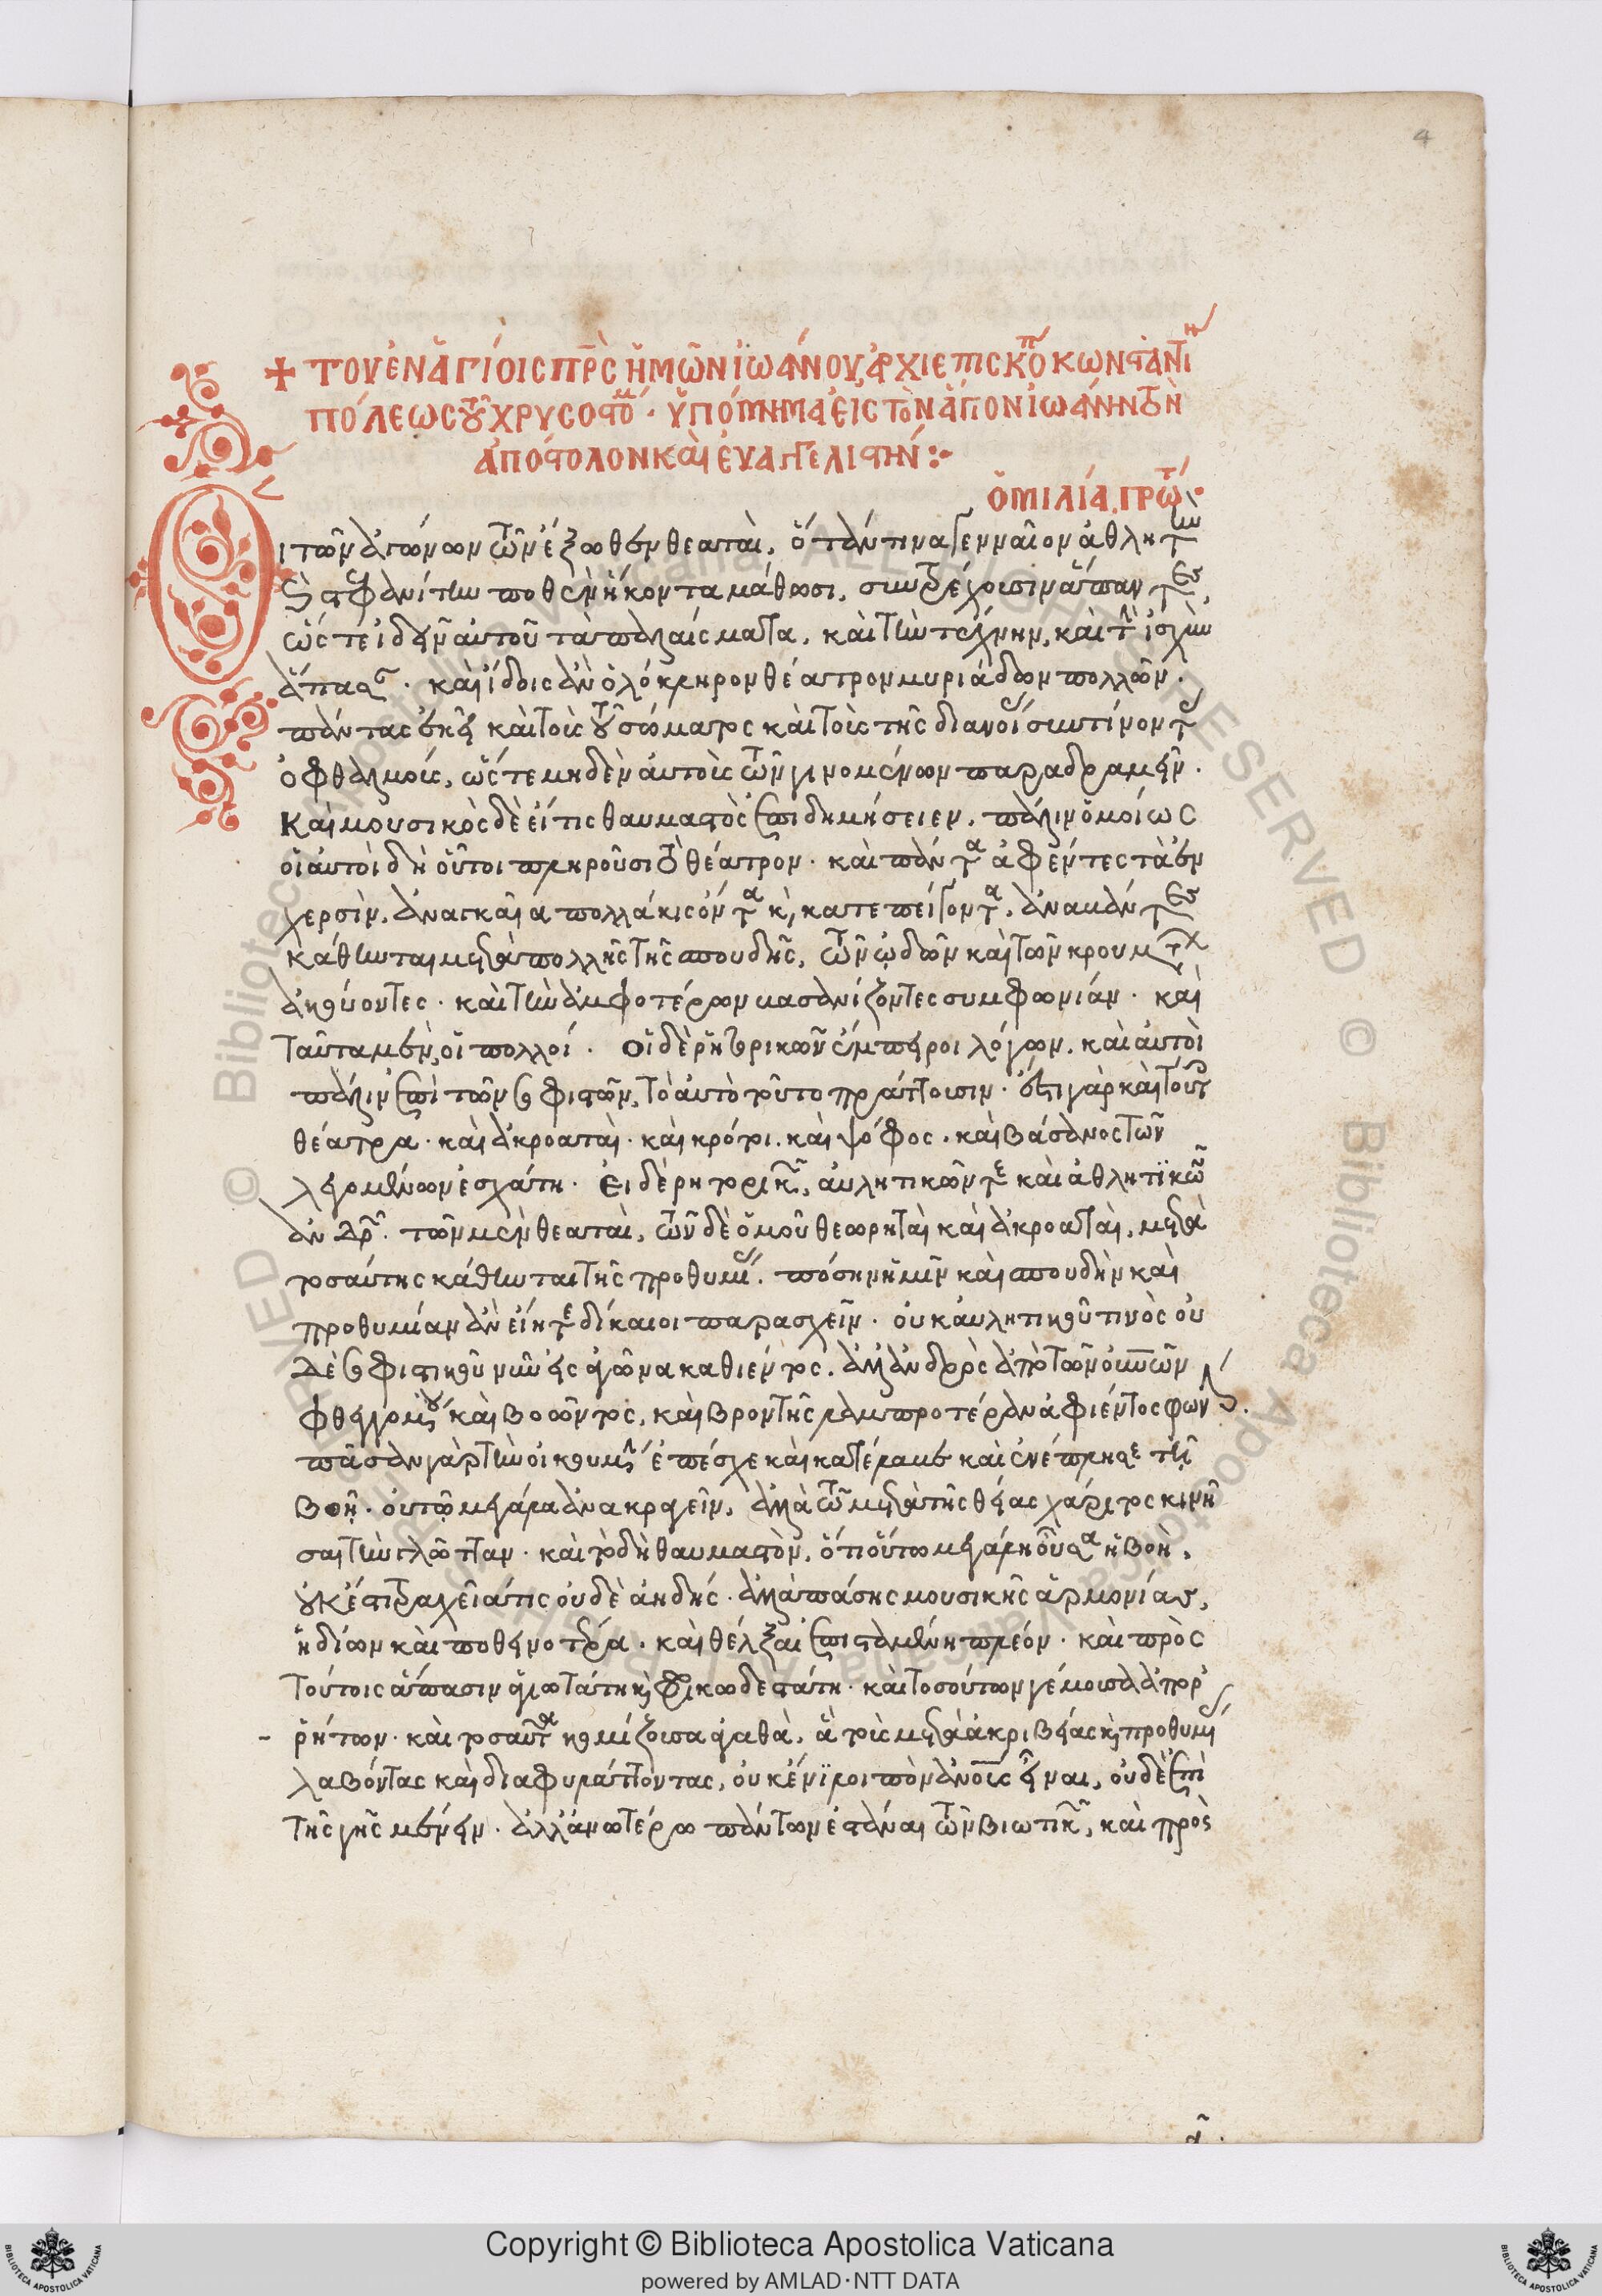 4
+ τοῦ ἐν ἁγίοις πρ̅ς ἡμῶν ἰωάννου, ἀρχιεπισκό κωνσταντι
πόλεως τοῦ χρυσοστό· ὑπόμνημα εἰς τὸν ἅγιον ἰωάννην τὸν
ἀπόστολον καὶ εὐαγγελιστήν:-
ὁμιλία πρώτ·
Οἱ τῶν ἀγώνων τῶν ἔξωθεν θεαταὶ, ὅταν τινα γενναῖον ἀθλητὴν
καὶ στεφανίτην ποθὲν ἥκοντα μάθωσι, συντρέχουσιν ἅπαντες,
ὥς τε ἰδεῖν αὐτοῦ τὰ παλαίσματα, καὶ τὴν τέχνην, καὶ τὴν ἰσχὺν
ἅπασαν· καὶ ἴδοις ἂν ὁλόκληρον θέατρον μυριάδων πολλῶν.
πάντας ἐκεῖ καὶ τοῖς τοῦ σώματος καὶ τοῖς τῆς διανοίας συντείνοντας
ὀφθαλμοῖς, ὥς τε μηδὲν αὐτοὺς τῶν γινομένων παραδραμεῖν.
Καὶ μουσικὸς δὲ εἴ τις θαυμαστὸς ἐπιδημήσειεν, πάλιν ὁμοίως
οἱ αὐτοὶ δὴ οὗτοι πληροῦσι τὸ θέατρον· καὶ πάντα ἀφέντες τὰ ἐν
χερσὶν, ἀναγκαῖα πολλάκις ὄντα κ, κατεπείγοντα, ἀναβάντες
κάθηνται μετὰ πολλῆς τῆς σπουδῆς, τῶν ᾠδῶν καὶ τῶν κρουμάτων
ἀκούοντες· καὶ τὴν ἀμφοτέρων βασανίζοντες συμφωνίαν· καὶ
ταῦτα μὲν, οἱ πολλοί. οἱ δὲ ῥητορικῶν ἔμπειροι λόγων, καὶ αὐτοὶ
πάλιν ἐπὶ τῶν σοφιστῶν, τὸ αὐτὸ τοῦτο πράττουσιν· ἔστι γὰρ καὶ τούτοις
θέατρα· καὶ ἀκροαταὶ· καὶ κρότοι. καὶ ψόφος· καὶ βάσανος τῶν
λεγομένων ἐσχάτη· Εἰ δὲ ῥητορικῶν, αὐλητικῶν τε καὶ ἀθλητικῶν
ἀνδρῶν. τῶν μὲν θεαταὶ, τῶν δὲ ὁμοῦ θεωρηταὶ καὶ ἀκροαταὶ, μετὰ
τοσαύτης κάθηνται τῆς προθυμίας. πόσην ἡμῖν καὶ σπουδὴν καὶ
προθυμίαν ἂν εἴητε δίκαιοι παρασχεῖν· οὐκ αὐλητικοῦ τινὸς οὐ
δὲ σοφιστικοῦ νῦν εἰς ἀγῶνα καθιέντος. ἀλλ' ἀνδρὸς ἀπὸ τῶν οὐνῶν
φθεγγομένου καὶ βοῶντος, καὶ βροντῆς λαμπροτέραν ἀφιέντος φωνήν.
πᾶσαν γὰρ τὴν οἰκουμένην ἐπέσχε καὶ κατέλαβε καὶ ἐνέπλησε τῇ
βοῇ· οὐ τῷ μεγάλα ἀνακραγεῖν, ἀλλὰ τῷ μετὰ τῆς θείας χάριτος κινῆ
σαι τὴν γλῶτταν· καὶ τὸ δὴ θαυμαστὸν, ὅτι οὕτω μεγάλη οὖσα ἡ βοὴ,
οὔκ ἐστι τραχεῖά τις οὐδὲ ἀηδής· ἀλλὰ πάσης μουσικῆς ἁρμονίας,
ἡδίων καὶ ποθεινοτέρα· καὶ θέλξαι ἐπισταμένη πλέον· καὶ πρὸς
τούτοις ἅπασιν ἁγιωτάτη κ, φρικωδεστάτη· καὶ τοσούτων γέμουσα ἀπορ
- ρήτων· καὶ τοσαῦτα κομίζουσα ἀγαθὰ, ἃ τοὺς μετὰ ἀκριβείας κ, προθυμίας
λαβόντας καὶ διαφυλάττοντας, οὐκ ἔνι λοιπὸν ἀνους εἶναι, οὐδὲ ἐπὶ
τῆς γῆς μένειν· ἀλλ' ἀνωτέρω πάντων ἑστάναι τῶν βιωτικῶν, καὶ πρὸς
α.
Copyright © Biblioteca Apostolica Vaticana
powered by AMLAD·NTT DATA